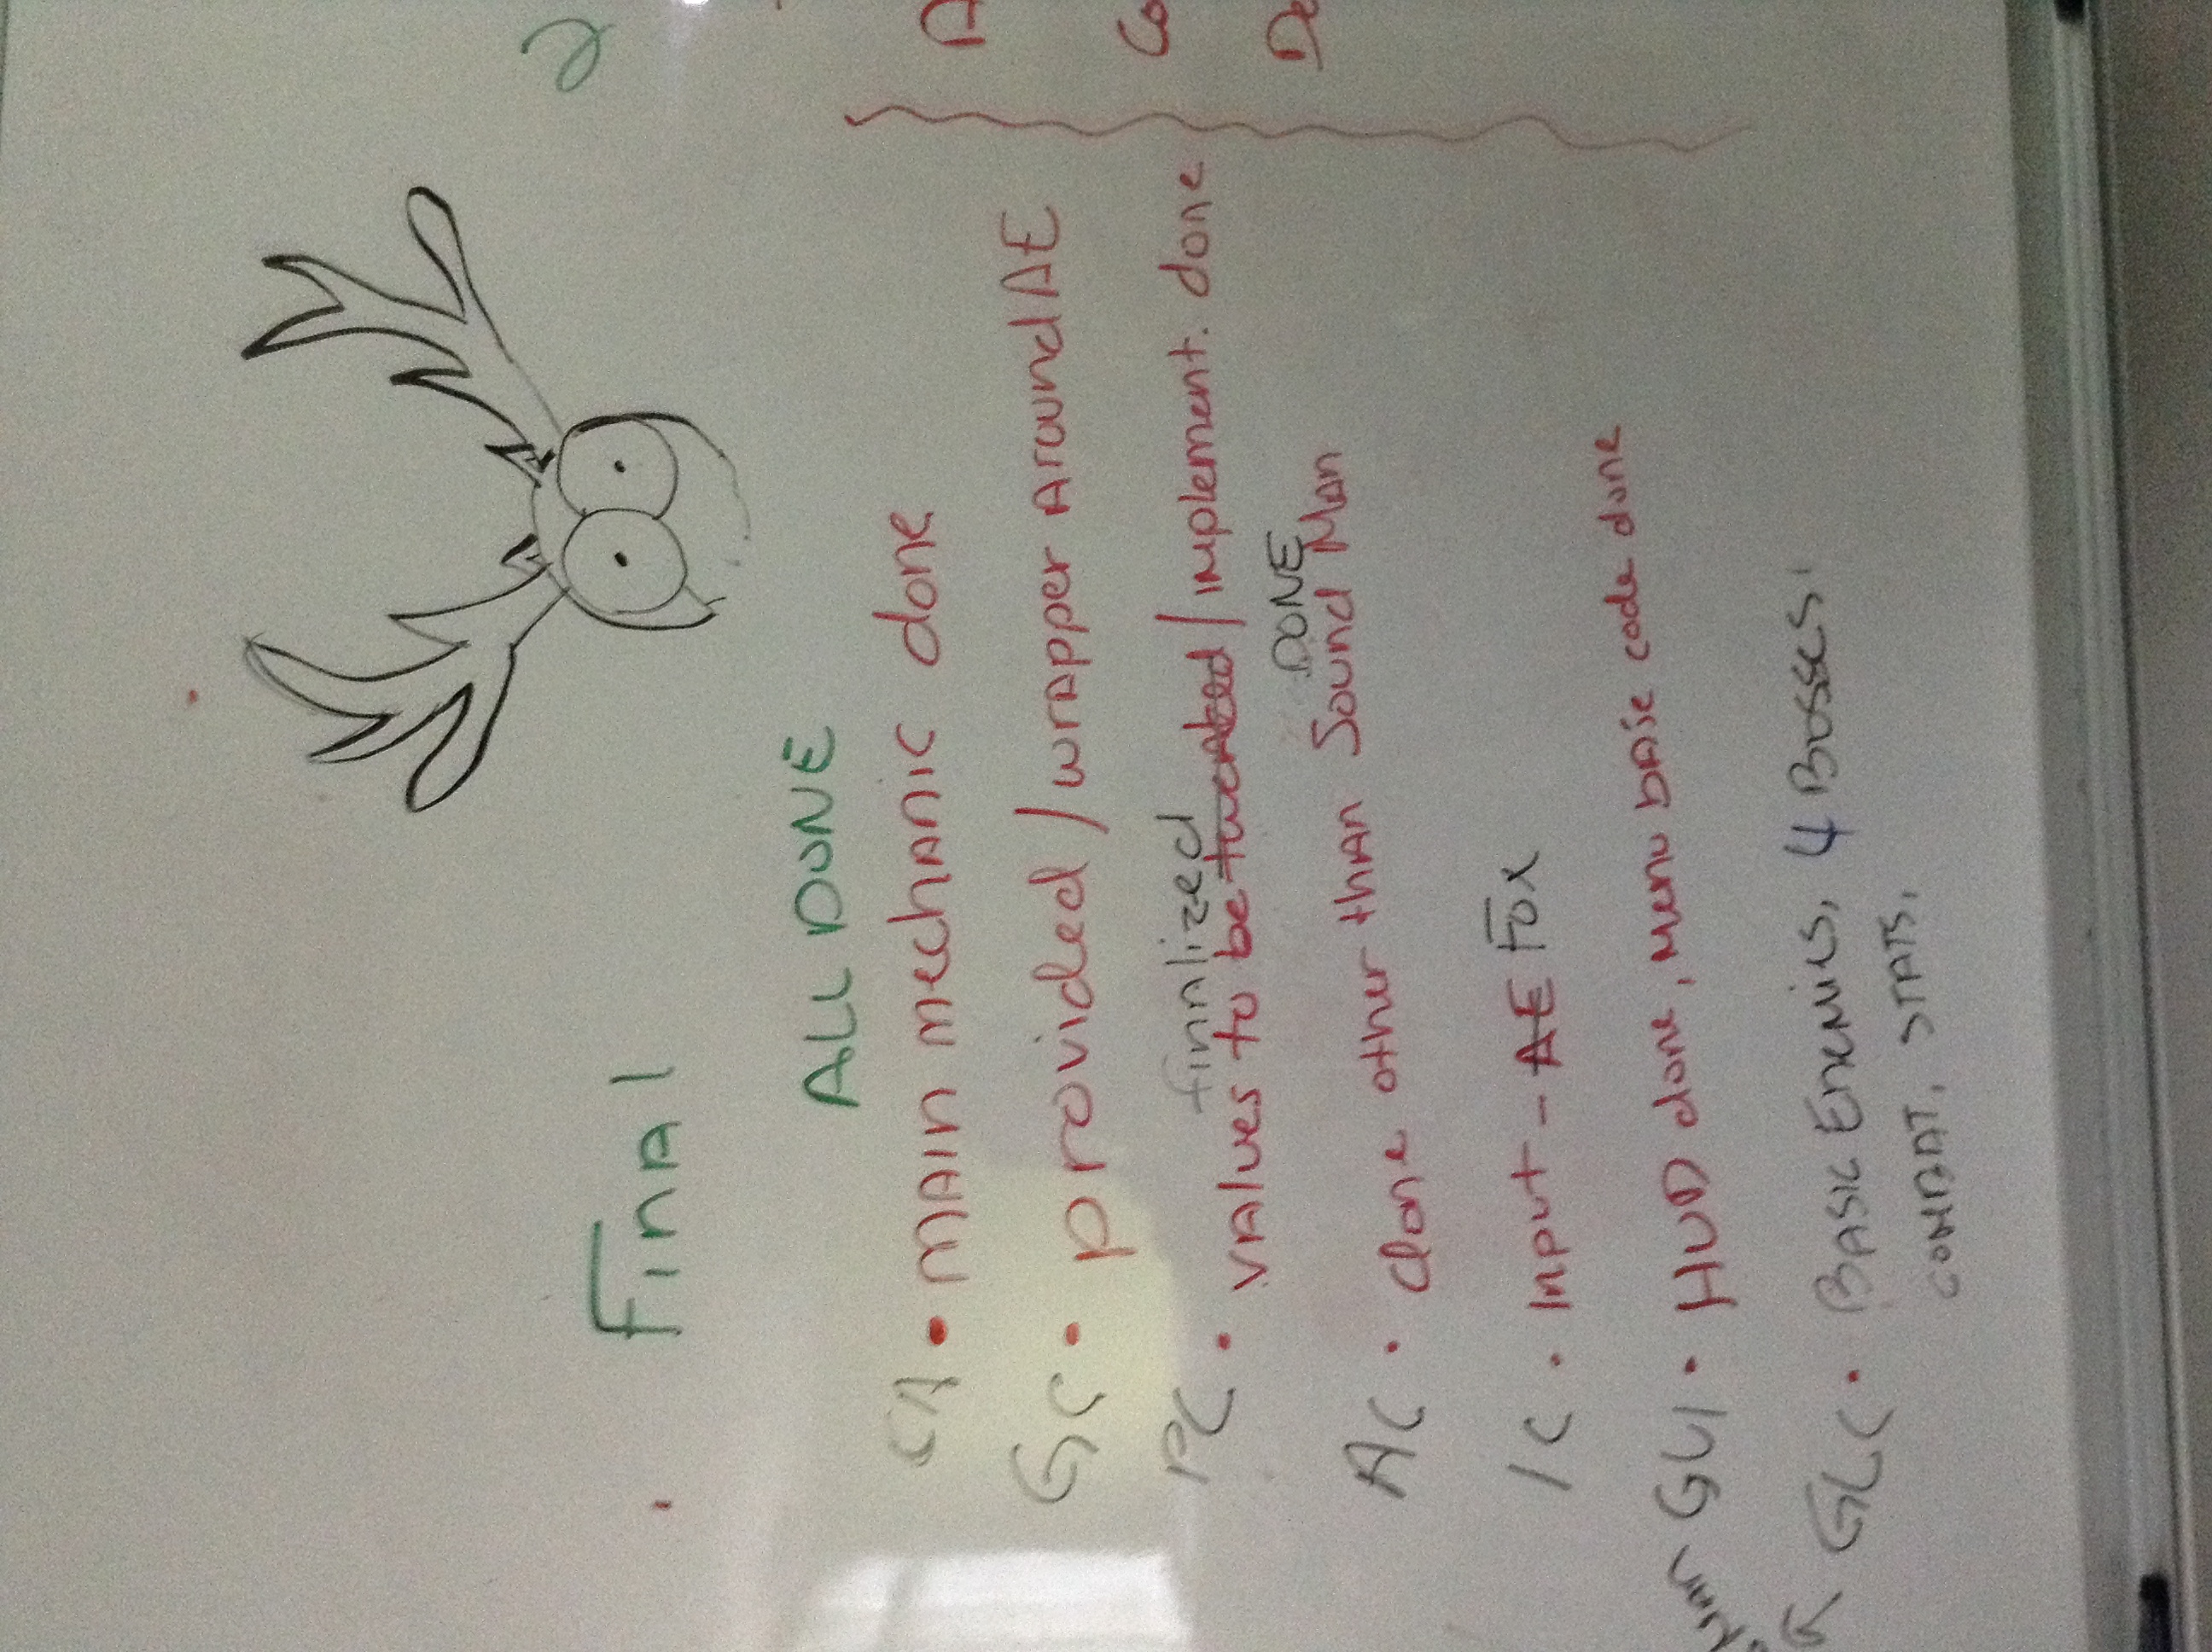 Final
ALL DONE
CA • MAIN MECHANIC done
GC • provided / wrapper Around AE
finalized
PC • VAlues to be tweaked / implement. done
DONE
AC • done other than Sound Man
IC • Input - AE Fox
GUI • HUD done, Menu base code done
GLC • BASIC ENEMIES, 4 BOSSES,
COMBAT, STATS,